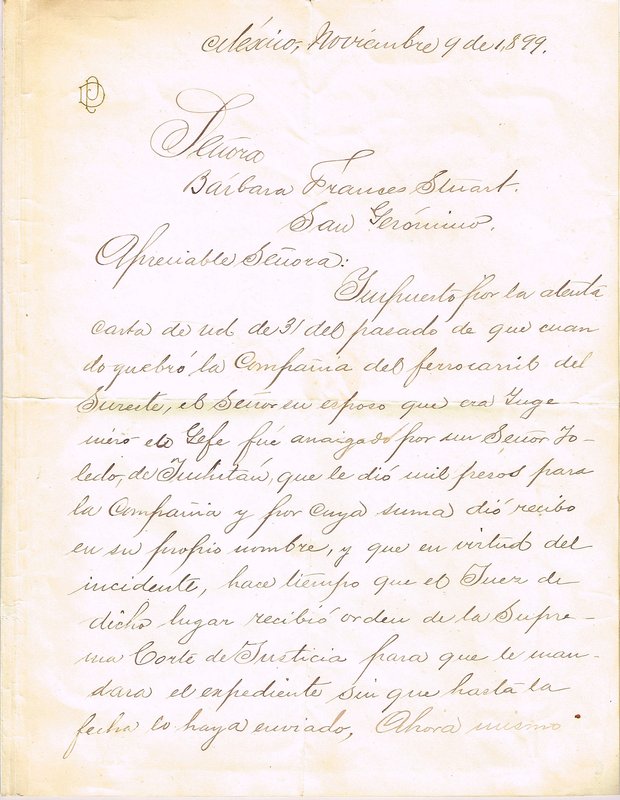 México, Noviembre 9 de 1,899.
PD
Señora
Bárbara Frances Stuart.
San Gerónimo.
Apreciable Señora:
Impuesto por la atenta
carta de ud de 31 del pasado de que cuan
do quebró la Compañia del ferrocarril del
Sureste, el Señor su esposo que era Inge-
niero en Gefe fué arraigado por un Señor To-
ledo, de Juchitán, que le dió mil pesos para
la Compañia y por cuya suma dió recibo
en su propio nombre, y que en virtud del
incidente, hace tiempo que el Juez de
dicho lugar recibió orden de la Supre-
ma Corte de Justicia para que le man-
dara el expediente sin que hasta la
fecha lo haya enviado, Ahora mismo